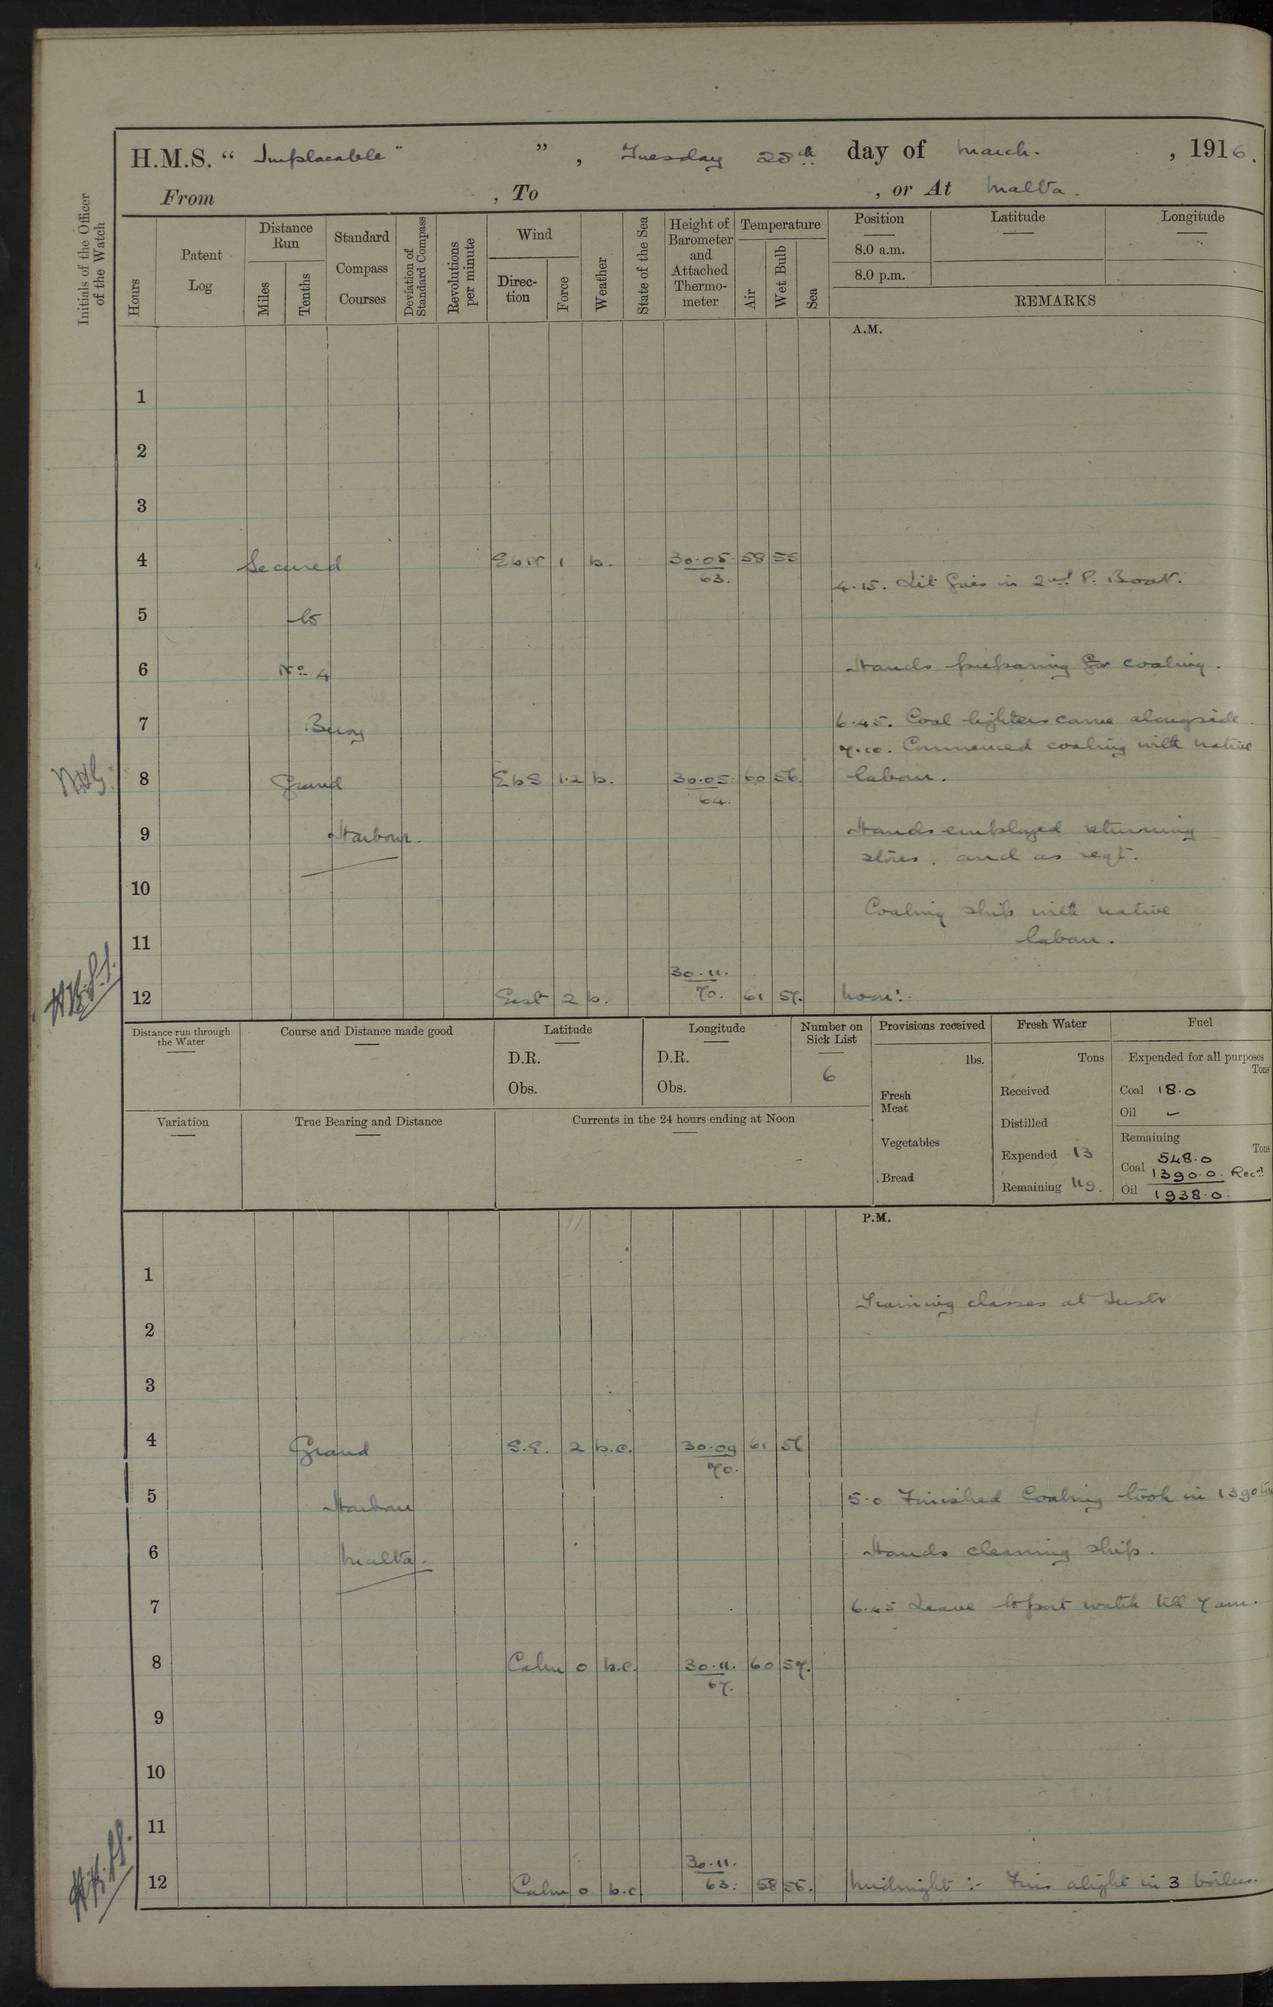 H.M.S. “ Implacable ” ” , Tuesday 28th day of March. , 1916.
From , To , or At Malta.
Initials of the Officer of the Watch
Hours
Patent Log
Distance Run
Miles
Tenths
Standard Compass Courses
Deviation of Standard Compass
Revolutions per minute
Wind
Direction
Force
Weather
State of the Sea
Height of Barometer and Attached Thermometer
Temperature
Air
Wet Bulb
Sea
Position
8.0 a.m.
8.0 p.m.
Latitude
Longitude
REMARKS
A.M.
1
2
3
4 Secured EbN 1 b. 30.05. 63. 58 55
4.15. Lit fires in 2nd P. Boat.
5 to
6 No 4 Hands preparing for coaling.
7 Buoy 6.45. Coal lighters came alongside.
7.10. Commenced coaling with native
8 Grand EbS 1.2 b. 30.05. 64. 60 56. labour.
9 Harbour. Hands employed returning
stores, and as reqt.
10
Coaling ship with native
11 labour.
12 East 2 b. 30.11. 70. 61 57. Noon:-
Distance run through the Water
Course and Distance made good
Latitude
D.R.
Obs.
Longitude
D.R.
Obs.
Number on Sick List
6
Provisions received
lbs.
Fresh Meat
Vegetables
Bread
Fresh Water
Tons
Received
Distilled
Expended 13
Remaining 119.
Fuel
Expended for all purposes
Tons
Coal 18.0
Oil -
Remaining
Tons
Coal 548.0
1390.0. Recd
Oil 1938.0.
Variation
True Bearing and Distance
Currents in the 24 hours ending at Noon
P.M.
1
Training classes at Instr
2
3
4 Grand S.E. 2 b.c. 30.09 70. 61 56
5 Harbour 5.0 Finished Coaling took in 1390
6 Malta. Hands cleaning ship.
7 6.45 Leave to part watch till 7 am.
8 Calm 0 b.c. 30.11. 67. 60 57.
9
10
11
12 Calm 0 b.c. 30.11. 63. 58 56. Midnight :- Fires alight in 3 boilers.